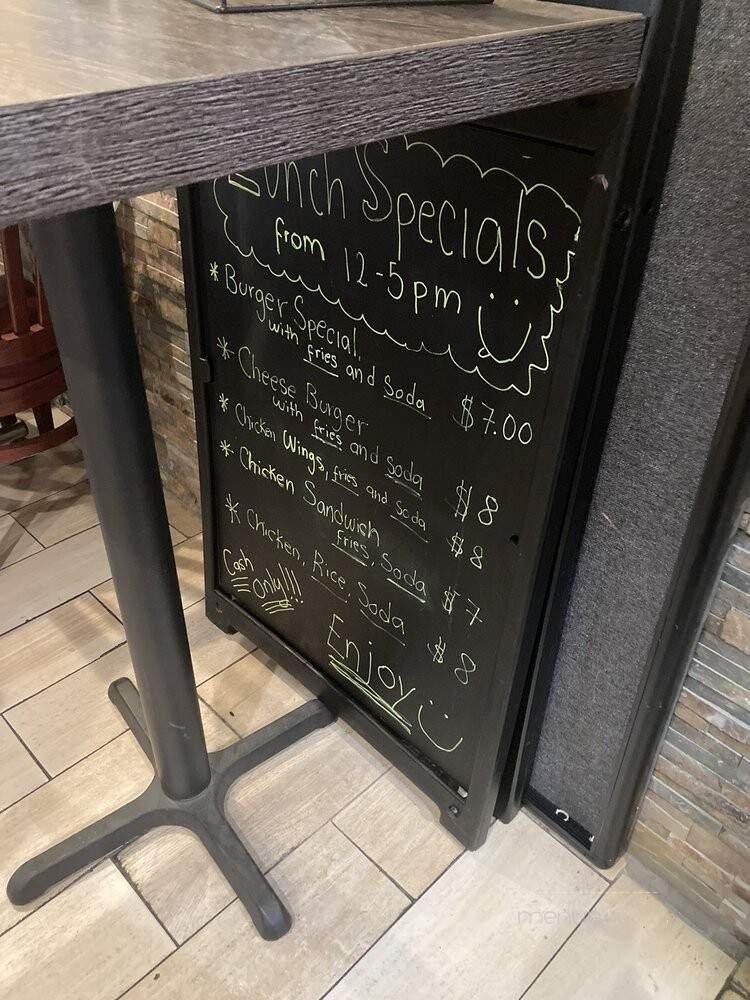 Lunch Specials
from 12-5pm
* Burger Special,
with fries and soda $7.00
* Cheese Burger
with fries and soda $8
* Chicken Wings, fries and soda $8
* Chicken Sandwich
fries, Soda $7
* Chicken, Rice, Soda $8
Cash
Only!!!
Enjoy